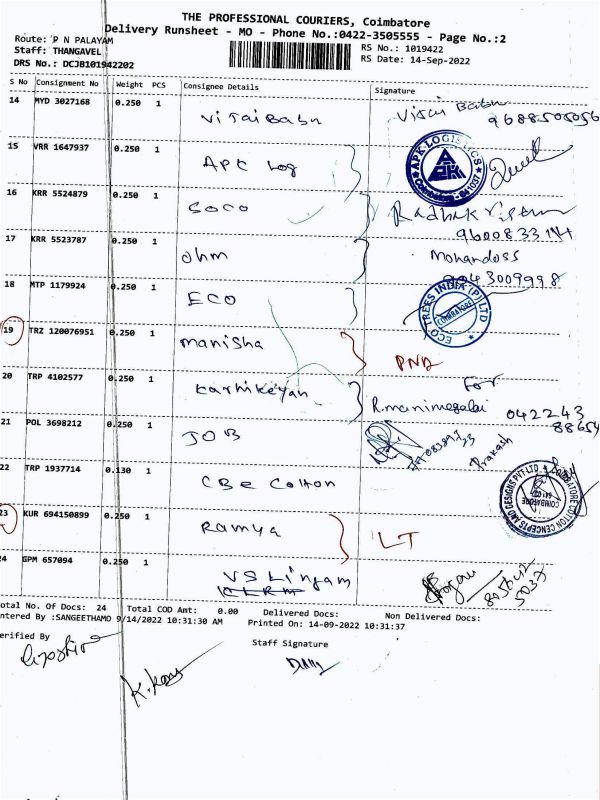 THE PROFESSIONAL COURIERS, Coimbatore
Delivery Runsheet - MO - Phone No.:0422-3505555 - Page No.:2
Route: P N PALAYAM
RS No.: 1019422
Staff: THANGAVEL
RS Date: 14-Sep-2022
DRS No.: DCJB101942202
S No Consignment No Weight PCS Consignee Details Signature
14 MYD 3027168 0.250 1 VijaiBabu Vijai Babu
9688505056
15 VRR 1647937 0.250 1 APK Log APK LOGISTICS
16 KRR 5524879 0.250 1 SOCO
17 KRR 5523787 0.250 1 Ohm Mohandoss
9043009998
18 MTP 1179924 0.250 1 ECO ECO TREES INDIA (P) LTD
COIMBATORE
19 TRZ 120076951 0.250 1 manisha PND
20 TRP 4102577 0.250 1 Karthikeyan For
R.manimegalai 042243
88654
21 POL 3698212 0.250 1 JOB Prakash
22 TRP 1937714 0.130 1 CBE Cotton COIMBATORE COTTON CONCEPTS AND DESIGNS PVT LTD
23 KUR 694150899 0.250 1 Ramya LT
24 GPM 657094 0.250 1 VS Lingam
Total No. Of Docs: 24 Total COD Amt: 0.00 Delivered Docs: Non Delivered Docs:
Entered By :SANGEETHAMO 9/14/2022 10:31:30 AM Printed On: 14-09-2022 10:31:37
Verified By
Staff Signature